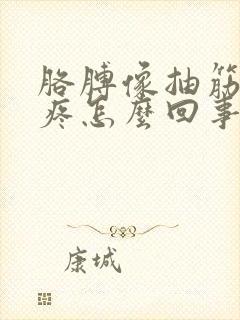 胳膊像抽筋
疼怎麼回事
康城